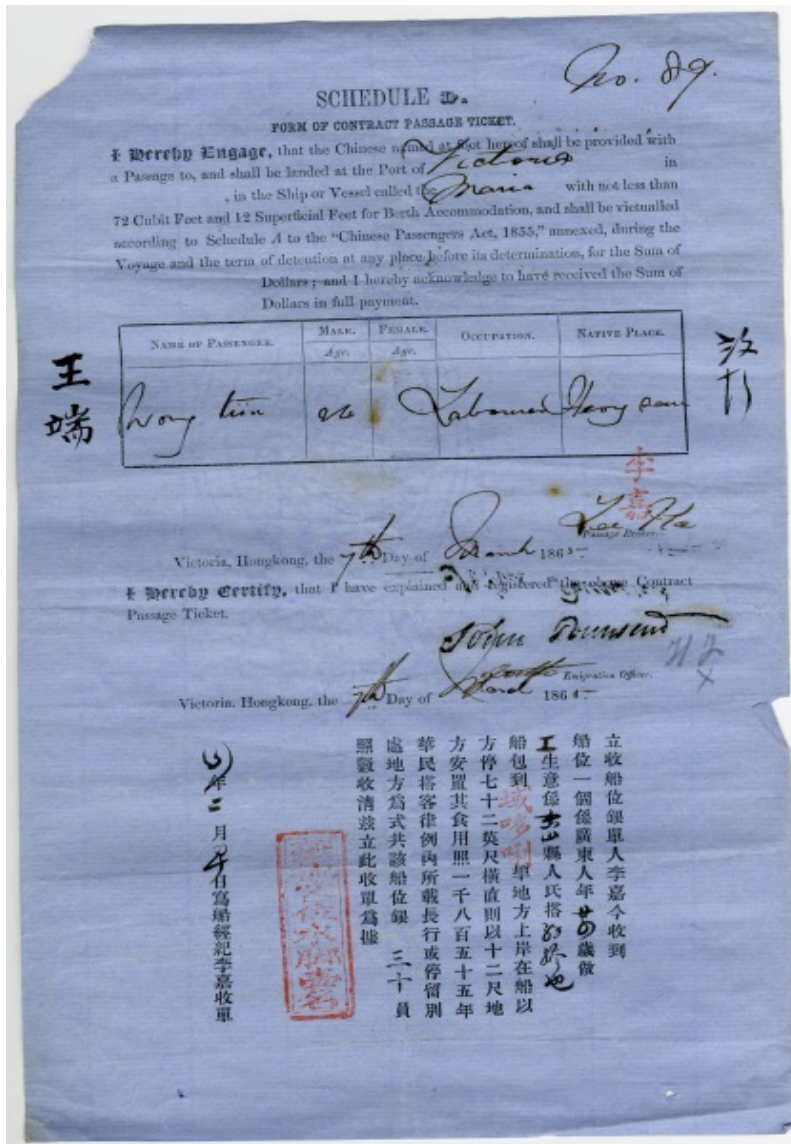 No. 89.
SCHEDULE D.
FORM OF CONTRACT PASSAGE TICKET.
I Hereby Engage, that the Chinese named at foot hereof shall be provided with
a Passage to, and shall be landed at the Port of Victoria in
, in the Ship or Vessel called the Maria with not less than
72 Cubit Feet and 12 Superficial Feet for Berth Accommodation, and shall be victualled
according to Schedule A to the "Chinese Passengers Act, 1855," annexed, during the
Voyage and the term of detention at any place before its determination, for the Sum of
Dollars; and I hereby acknowledge to have received the Sum of
Dollars in full payment.
NAME OF PASSENGER. MALE. Age. FEMALE. Age. OCCUPATION. NATIVE PLACE.
王端
Wong
李嘉
Passage Broker.
Victoria, Hongkong, the 7th Day of March 1865
I Hereby Certify, that I have explained and registered the above Contract
Passage Ticket.
John Townsend
Emigration Officer.
Victoria, Hongkong, the 7th Day of 1865
立收船位銀單人李嘉今收到
船位一個係廣東人年歲做
工生意係縣人氏搭
船包到域哆唎埠地方上岸在船以
方停七十二英尺橫直則以十二尺地
方安置其食用照一千八百五十五年
華民搭客律例內所載長行或停留別
處地方為式共該船位銀 三十員
照數收清茲立此收單為據
年二月日寫船經紀李嘉收單